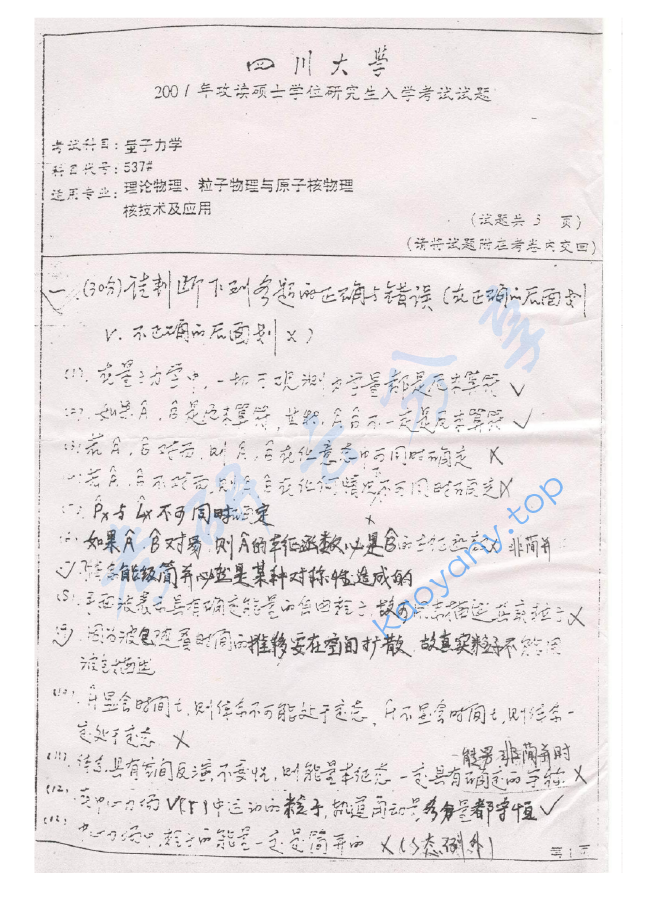 四川大学
2001年攻读硕士学位研究生入学考试试题
考试科目：量子力学
科目代号：537#
适用专业：理论物理、粒子物理与原子核物理
核技术及应用
(试题共3页)
(请将试题附在考卷内交回)
一、(30分)请判断下列各题的正确与错误(在正确的后面划
√. 不正确的后面划×)
(1). 在量子力学中，一切可观测力学量都是厄米算符 √
(2). 如果Â，B̂是厄米算符，其积ÂB̂不一定是厄米算符 √
(3) 若Â，B̂对易，则Â，B̂在任意态中可同时确定 ×
(4) 若Â，B̂不对易，则Â，B̂在任何情况不可同时确定 ×
P̂x与L̂x不可同时确定 ×
如果Â B̂对易，则Â的本征函数必是B̂的本征函数 非简并
能级简并必然是某种对称性造成的
(8) 平面波表示具有确定能量的自由粒子，故可 描述真实粒子 ×
(9) 因为波包随着时间的推移要在空间扩散，故真实粒子不能用
波包描述
(10). Ĥ显含时间t，则体系不可能处于定态，Ĥ不显含时间t，则体系一
定处于定态 ×
能级非简并时
(11). 体系具有空间反演不变性，则能量本征态一定具有确定的宇称 ×
(12). 在中心力场V(r)中运动的粒子，轨道角动量各分量都守恒 √
中心力场中，粒子的能量一定是简并的 ×(S态例外)
第1页
考研公社
kaoyany.top